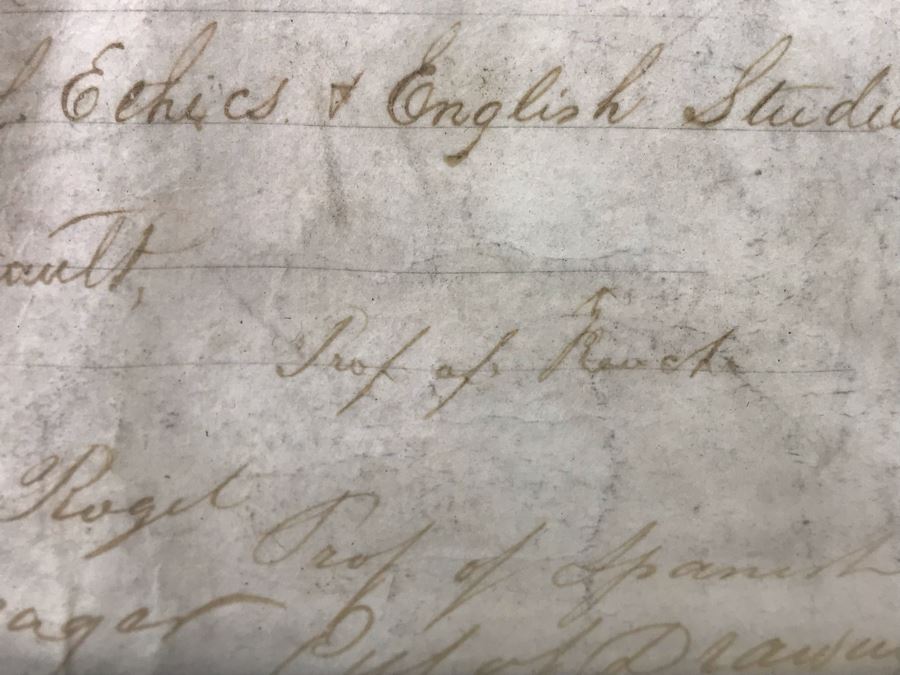 Ethics & English Studie
ault,
Prof of
Roget Prof of Spanish
eager Prof of Drawin